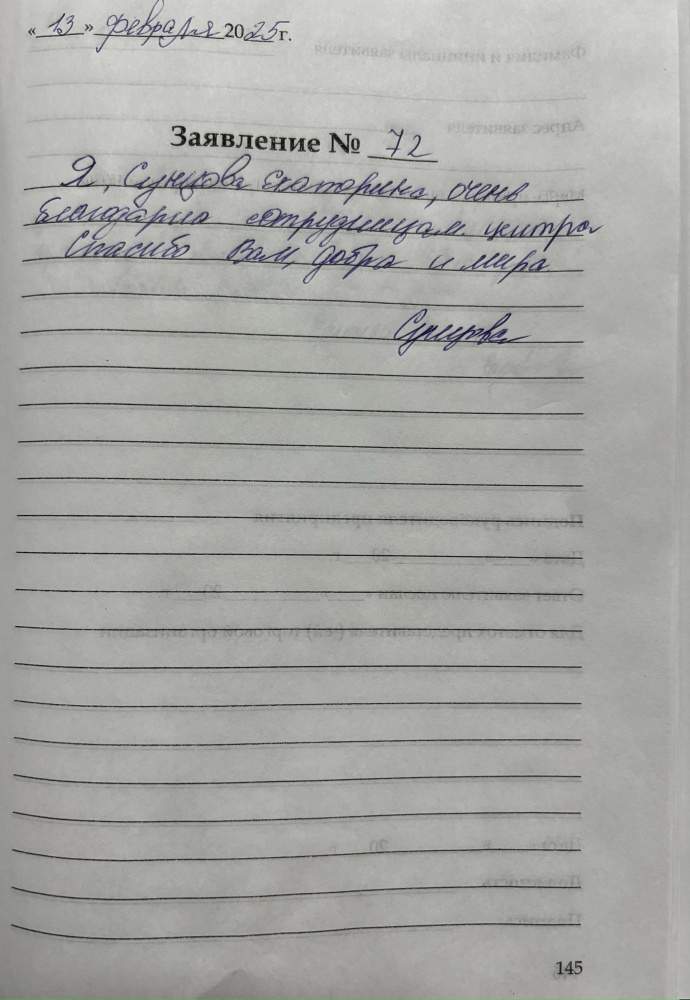 «13» февраля 2025г.
Заявление № 72
Я, Сунцова Екатерина, очень
благодарна сотрудницам центра
Спасибо Вам, добра и мира
Сунцова
145